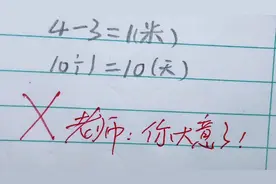 4-3=1(米)
10÷1=10(天)
× 老师:你大意了!